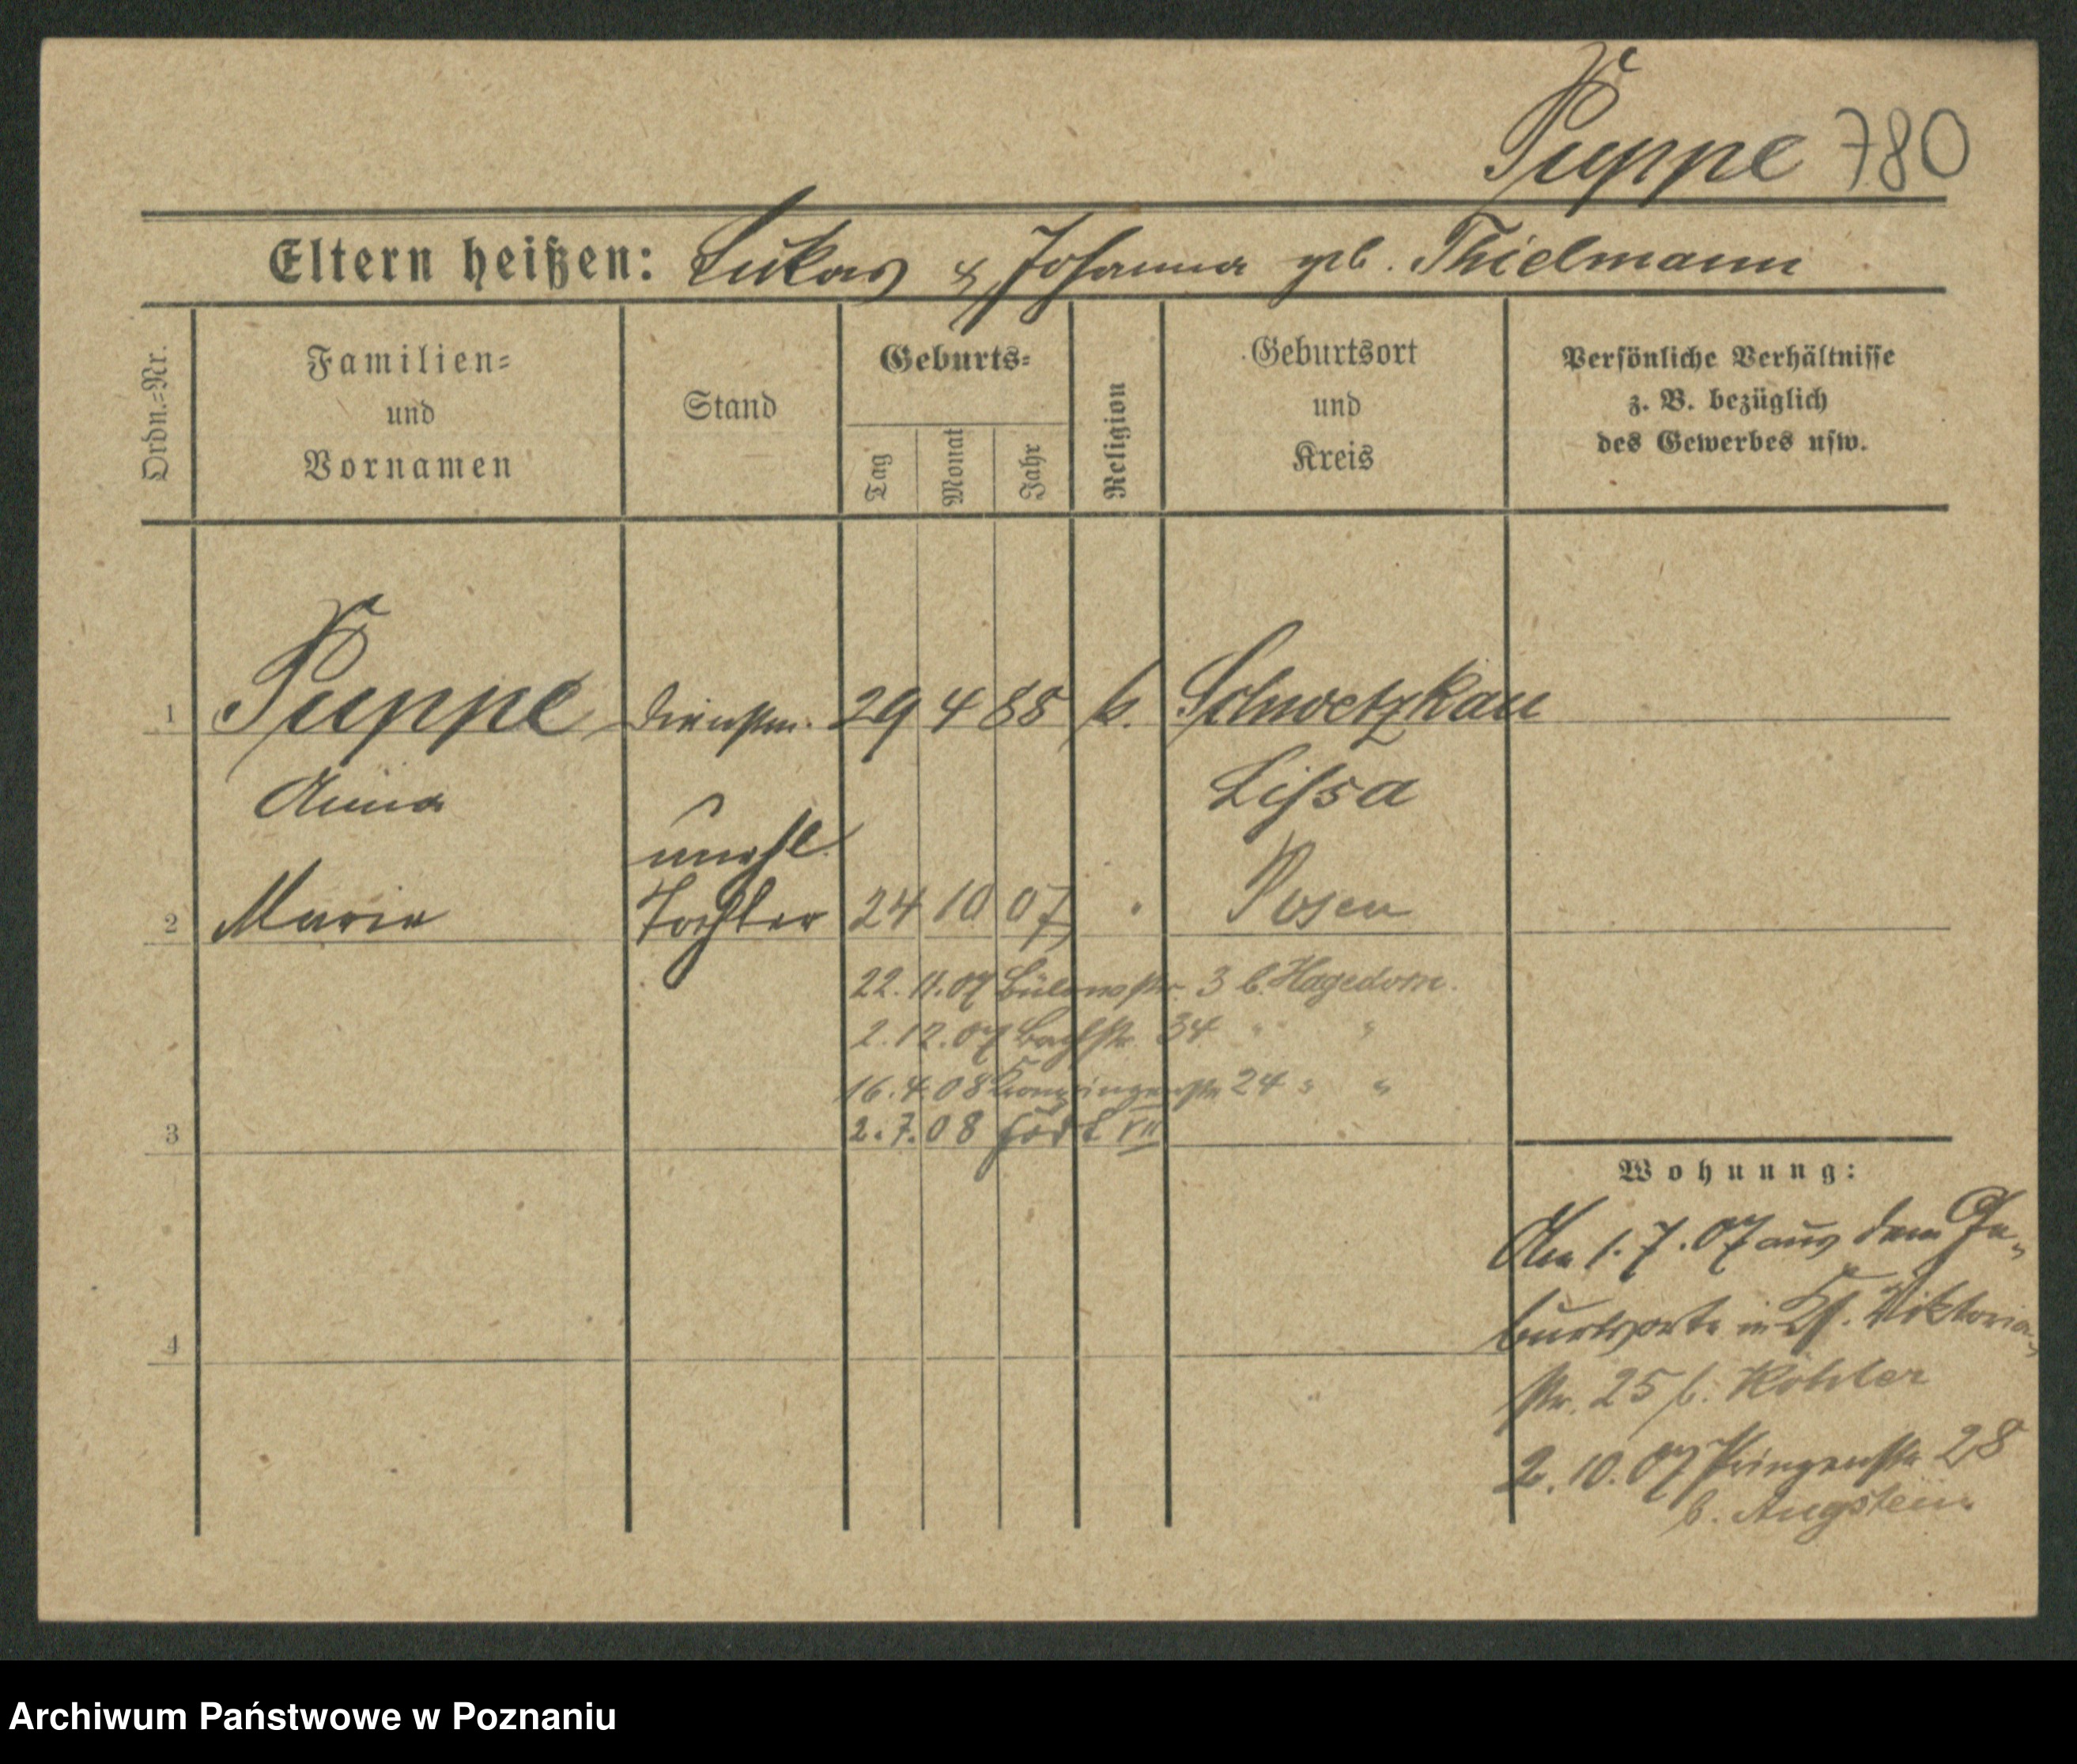 Puppe 780
Eltern heißen: Lukas & Johanna geb. Thielmann
Ordn.=Nr.
Familien=
und
Vornamen
Stand
Geburts=
Tag
Monat
Jahr
Religion
Geburtsort
und
Kreis
Persönliche Verhältnisse
z. B. bezüglich
des Gewerbes usw.
1 Puppe Dienstm. 29 4 88 k. Schwetzkau
Anna Lissa
unehl.
2 Marie Tochter 24 10 07 " Posen
22. 11. 07 Bülowstr. 3 b. Hagedorn.
2. 12. 07 Bachstr. 34 " "
16. 4. 08 Kronprinzenstr. 24 " "
3 2. 7. 08 VII
Wohnung:
Am 1. 7. 07 aus dem Ge-
burtsorte in Viktoria-
4
str. 25 b. Köhler
2. 10. 07 Prinzenstr. 28
b. Augstein.
Archiwum Państwowe w Poznaniu